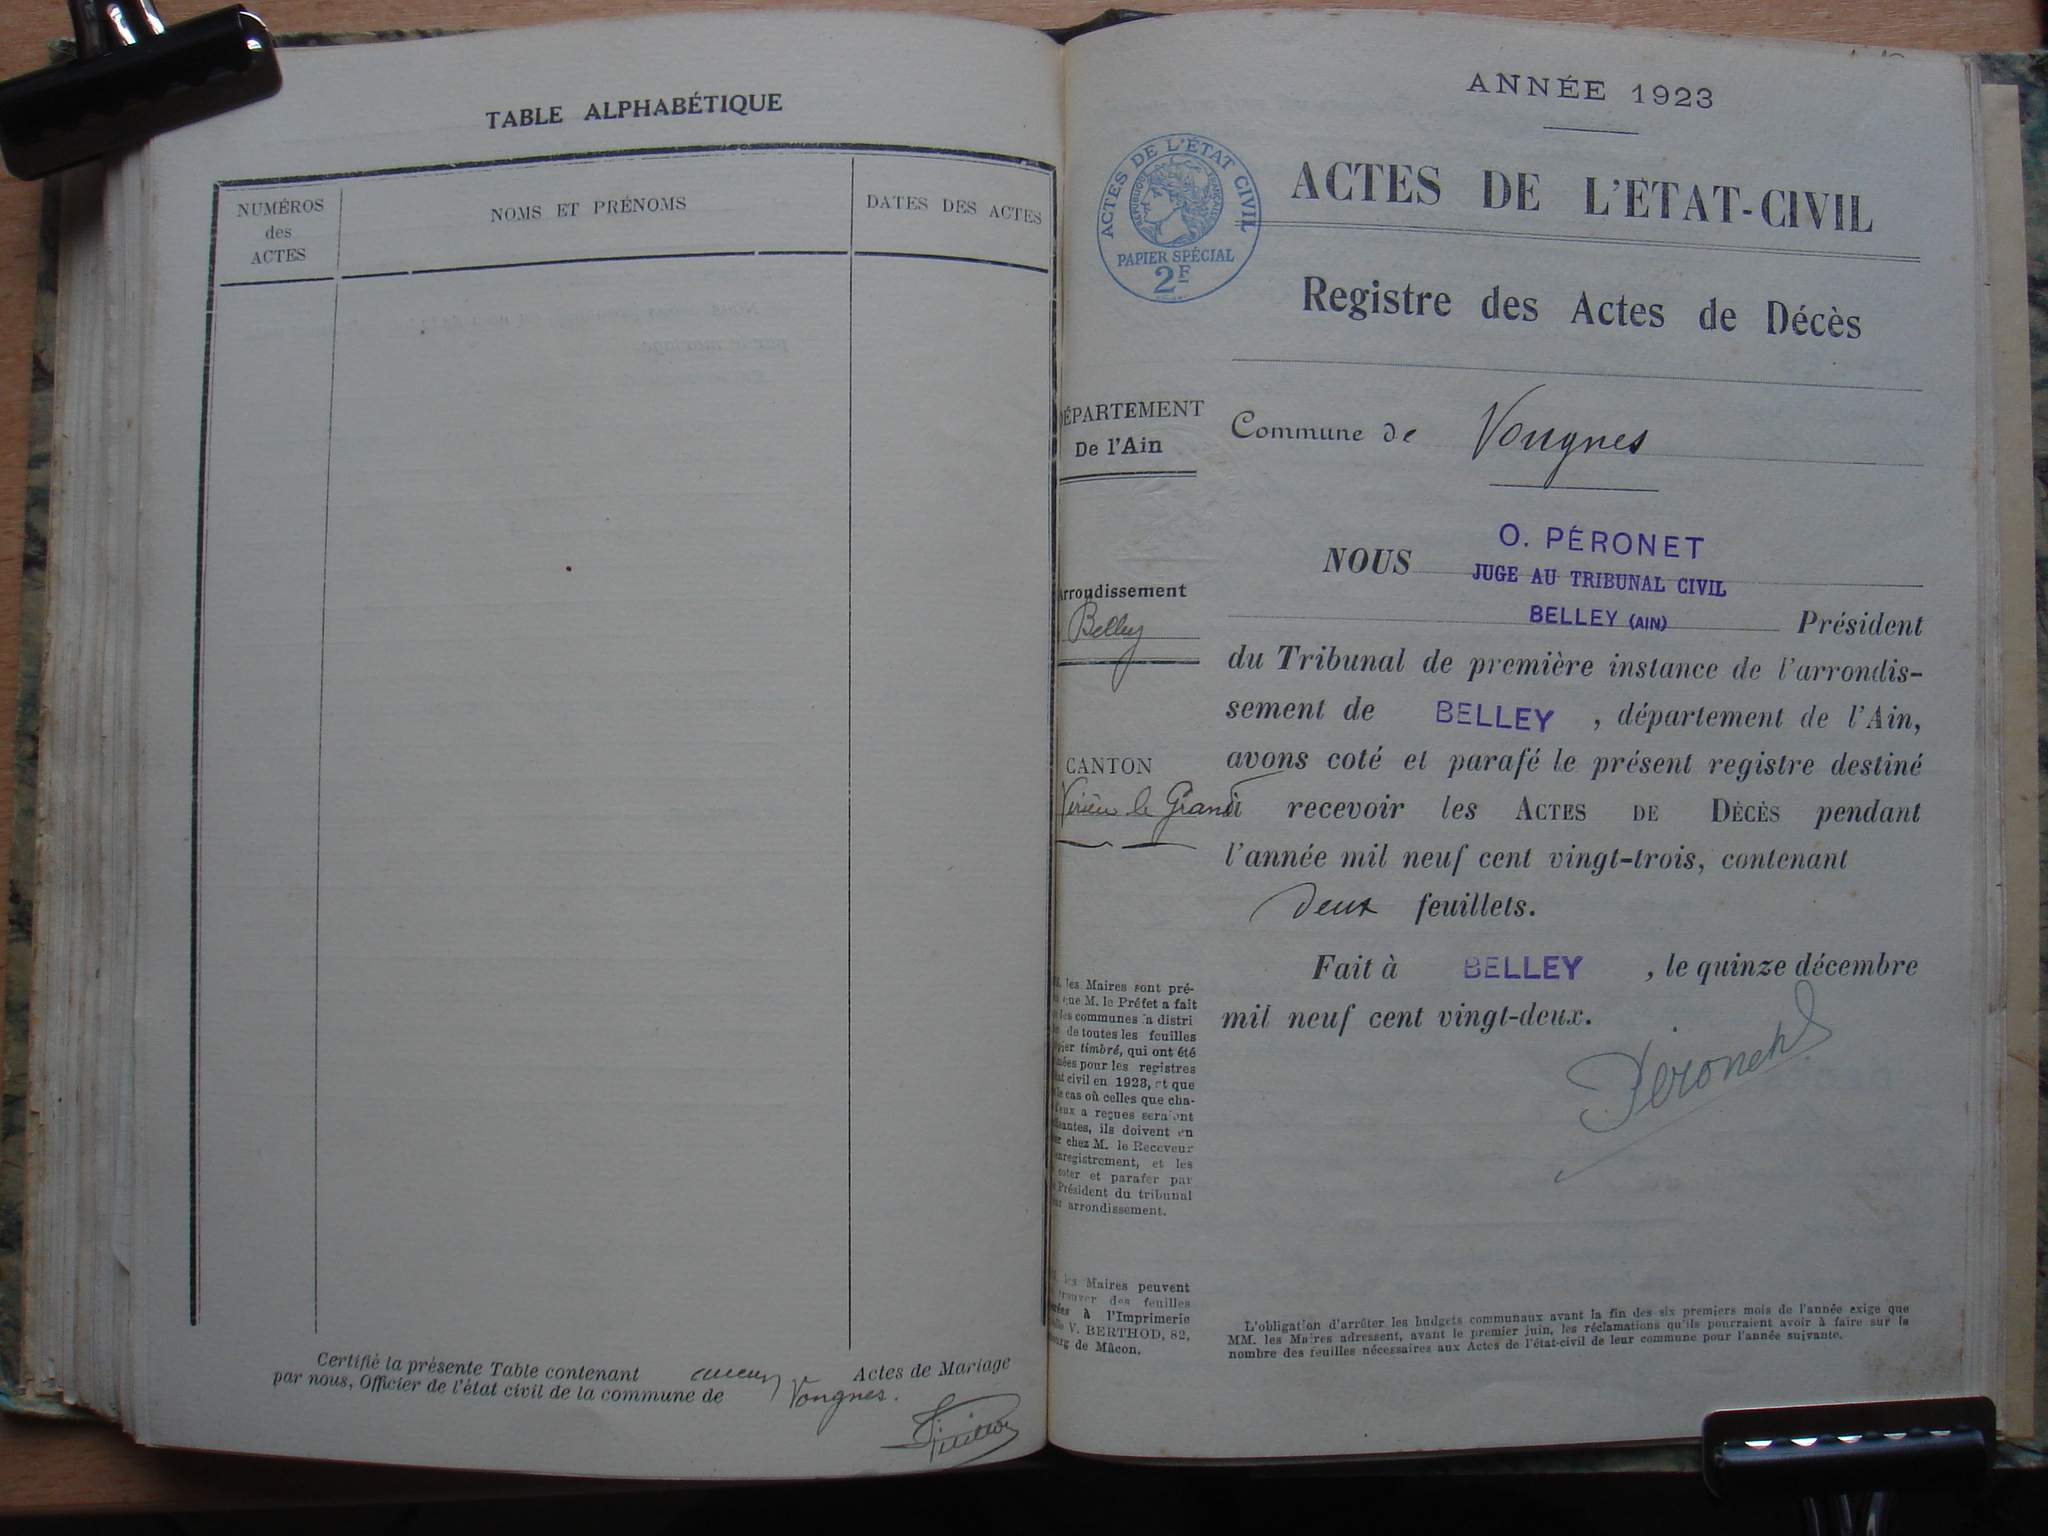 TABLE ALPHABÉTIQUE
NUMÉROS
des
ACTES
NOMS ET PRÉNOMS
DATES DES ACTES
Certifié la présente Table contenant aucun Actes de Mariage
par nous, Officier de l'état civil de la commune de Vongnes.
ANNÉE 1923
ACTES DE L'ÉTAT CIVIL
RÉPUBLIQUE FRANÇAISE
PAPIER SPÉCIAL
2F
ACTES DE L'ÉTAT-CIVIL
Registre des Actes de Décès
DÉPARTEMENT
De l'Ain
Arrondissement
Belley
CANTON
Virieu le Grand
les Maires sont pré-
que M. le Préfet a fait
les communes la distri
de toutes les feuilles
timbré, qui ont été
pour les registres
civil en 1923, et que
cas où celles que cha-
d'eux a reçues seraient
ils doivent en
chez M. le Receveur
enregistrement, et les
coter et parafer par
Président du tribunal
arrondissement.
les Maires peuvent
trouver des feuilles
à l'Imprimerie
V. BERTHOD, 82,
de Mâcon.
Commune de Vongnes
NOUS O. PÉRONET
JUGE AU TRIBUNAL CIVIL
BELLEY (AIN) Président
du Tribunal de première instance de l'arrondis-
sement de BELLEY , département de l'Ain,
avons coté et parafé le présent registre destiné
à recevoir les ACTES DE DÉCÈS pendant
l'année mil neuf cent vingt-trois, contenant
deux feuillets.
Fait à BELLEY , le quinze décembre
mil neuf cent vingt-deux.
Péronet
L'obligation d'arrêter les budgets communaux avant la fin des six premiers mois de l'année exige que
MM. les Maires adressent, avant le premier juin, les réclamations qu'ils pourraient avoir à faire sur le
nombre des feuilles nécessaires aux Actes de l'état-civil de leur commune pour l'année suivante.